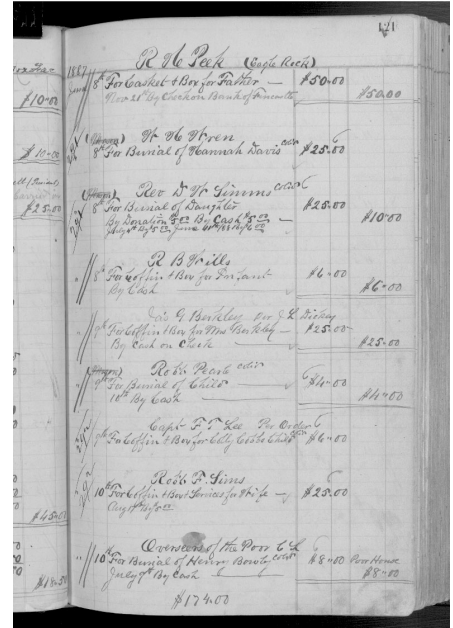 171
R H Peek (Eagle Rock)
1887
June 8th For Casket & Box for Father — $50.00
Nov 21st By Check on Bank of Fincastle $50.00
W H Wren
8th For Burial of Hannah Davis col'd $25.00
Rev D W Simms col'd
8th For Burial of Daughter $25.00
By Donation $5.00 By Cash $5.00 $10.00
R B Wills
8th For Coffin & Box for Infant $6.00
By Cash $6.00
Jas G Berkley per J L Dickey
9th For Coffin & Box for Berkley — $25.00
By Cash on Check $25.00
Robt col'd
9th For Burial of Child $4.00
10th By Cash $4.00
Capt F T Lee Per Order
9th For Coffin & Box for Child $6.00
Robt F. Sims
10th For Coffin & Box & Services for Wife $25.00
Overseers of the Poor
10th For Burial of Henry col'd $8.00 Poor House
July 9th By Cash $8.00
$174.00
$10.00
$10.00
$25.00
$45.00
$18.50